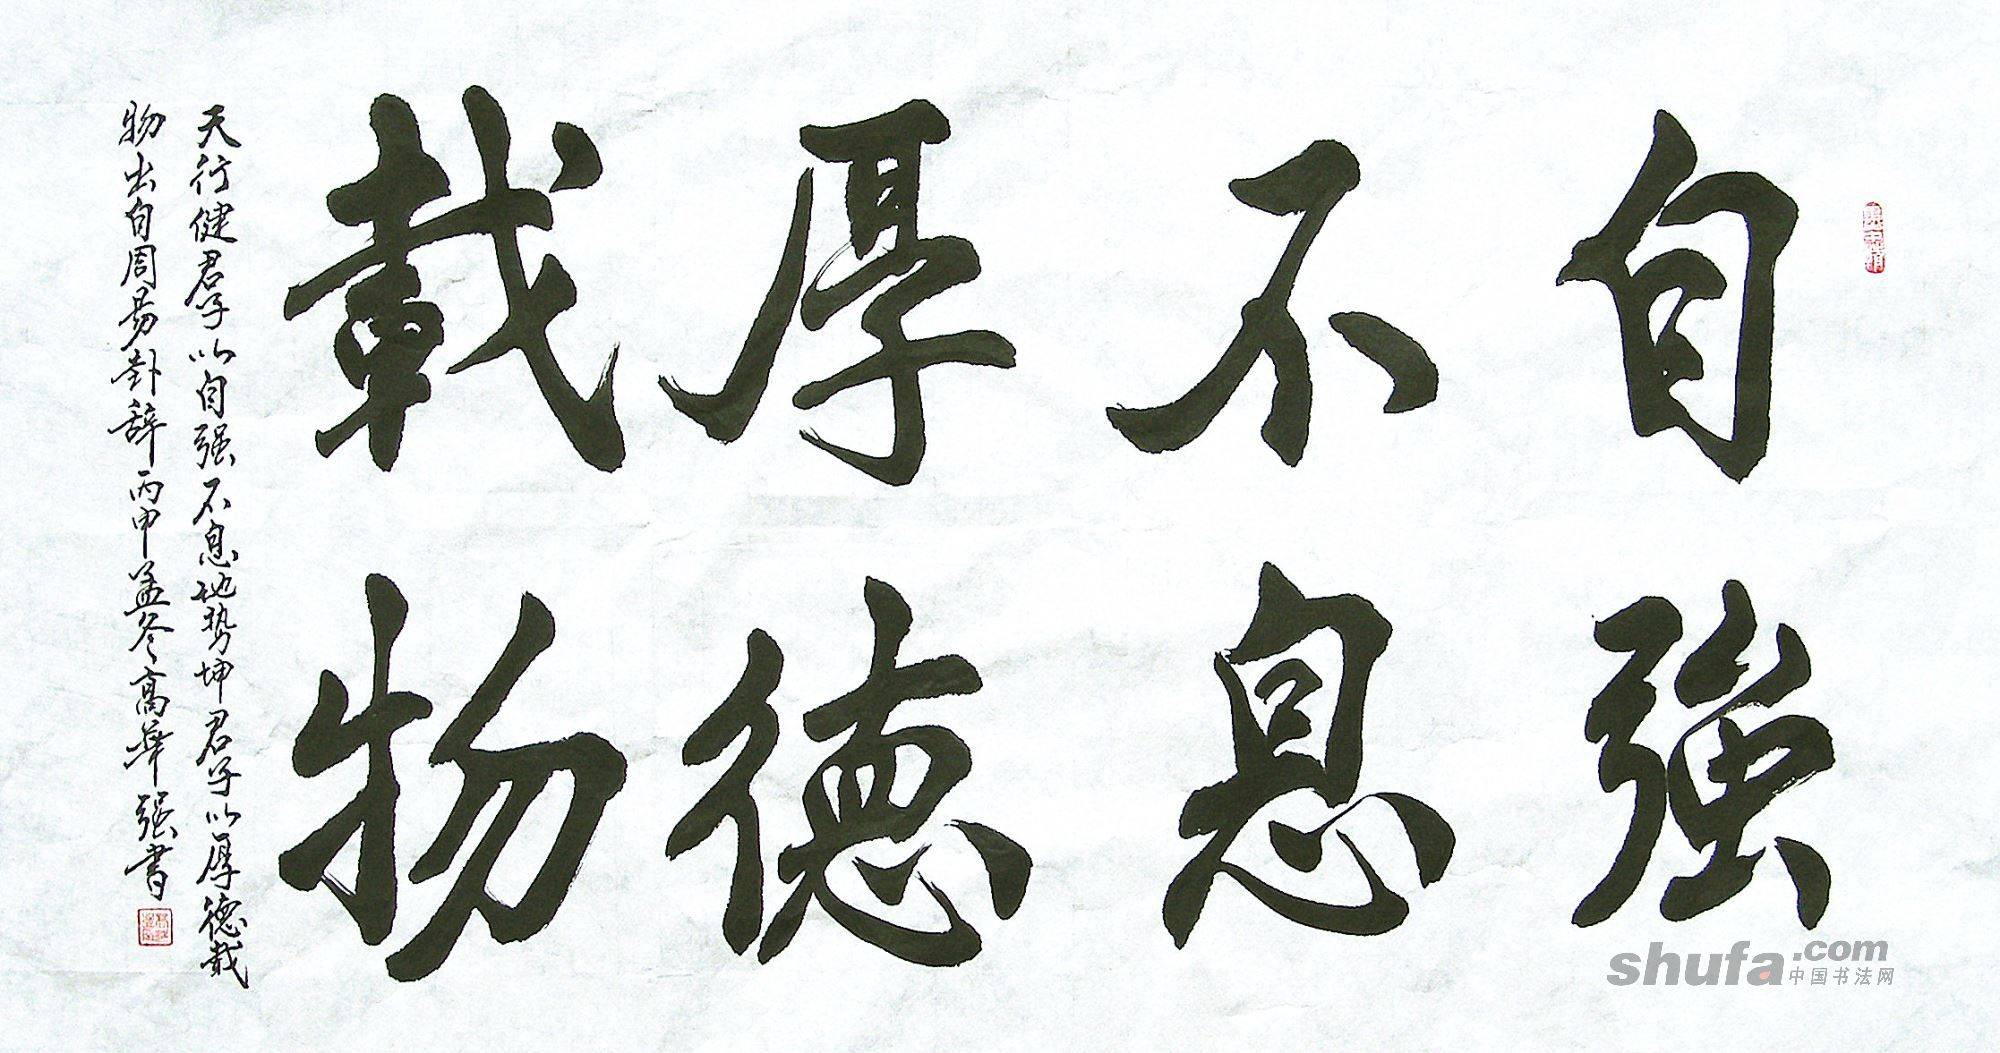 自強
不息
厚德
載物
天行健君子以自强不息地势坤君子以厚德载
物出自周易卦辞丙申孟冬高华强书
shufa.com
中国书法网